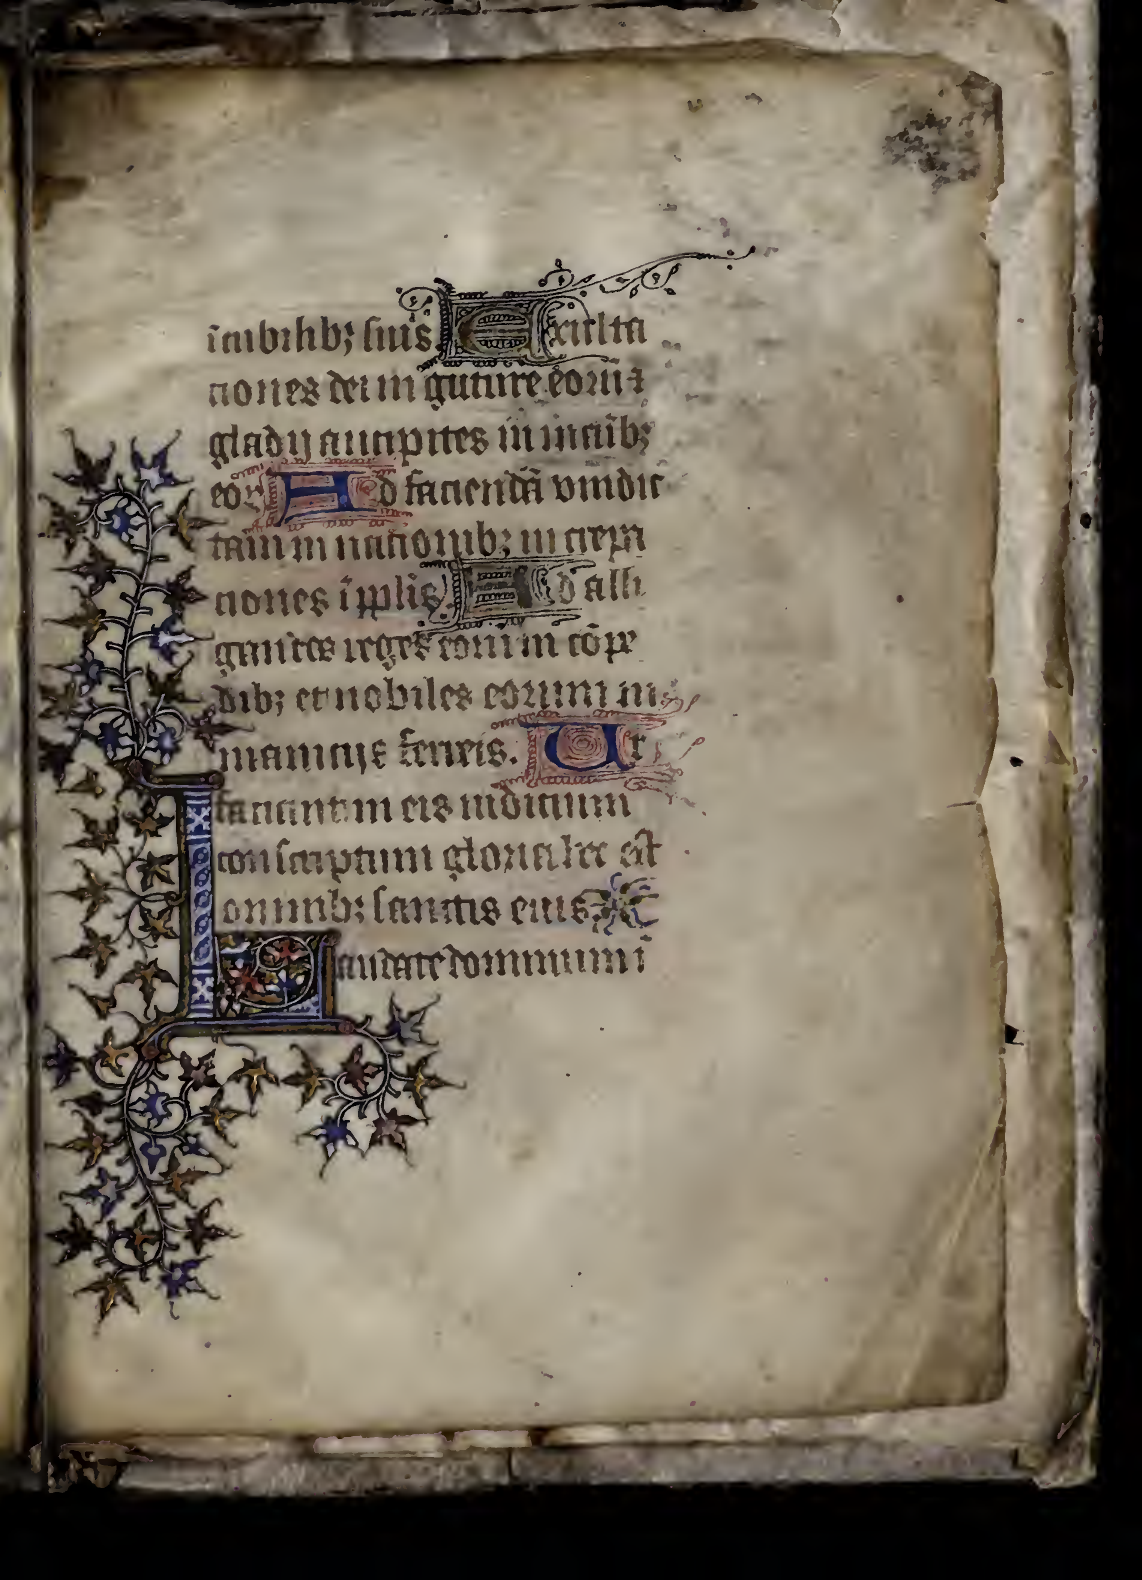 ī cubilib; suis. Exulta
tiones dei in guture eorū ⁊
gladij ancipites in manib;
eorꝝ Ad faciendā vindic
tam in nationib; increpa
tiones ī pplis Ad alli
gandos reges eorum in cōpe
dib; et nobiles eorum in
manicis ferreis. Ut
faciant in eis iudicium
conscriptum gloria hec est
omnib; sanctis eius
Laudate dominum ī